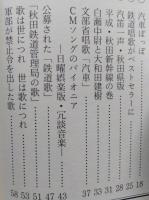 汽車ぽっぽ 18
鉄道唱歌がベストセラーに 25
汽笛一声・秋田県版 28
平成・秋田新幹線の巻 31
白瀬中尉と大和田建樹 33
文部省唱歌「汽車」 37
CMソングのパイオニア
―日曜娯楽版・冗談音楽― 43
公募された「鉄道歌」 47
「秋田鉄道管理局の歌」 51
歌は世につれ 世は歌につれ 53
軍部が禁止令を出した歌 58